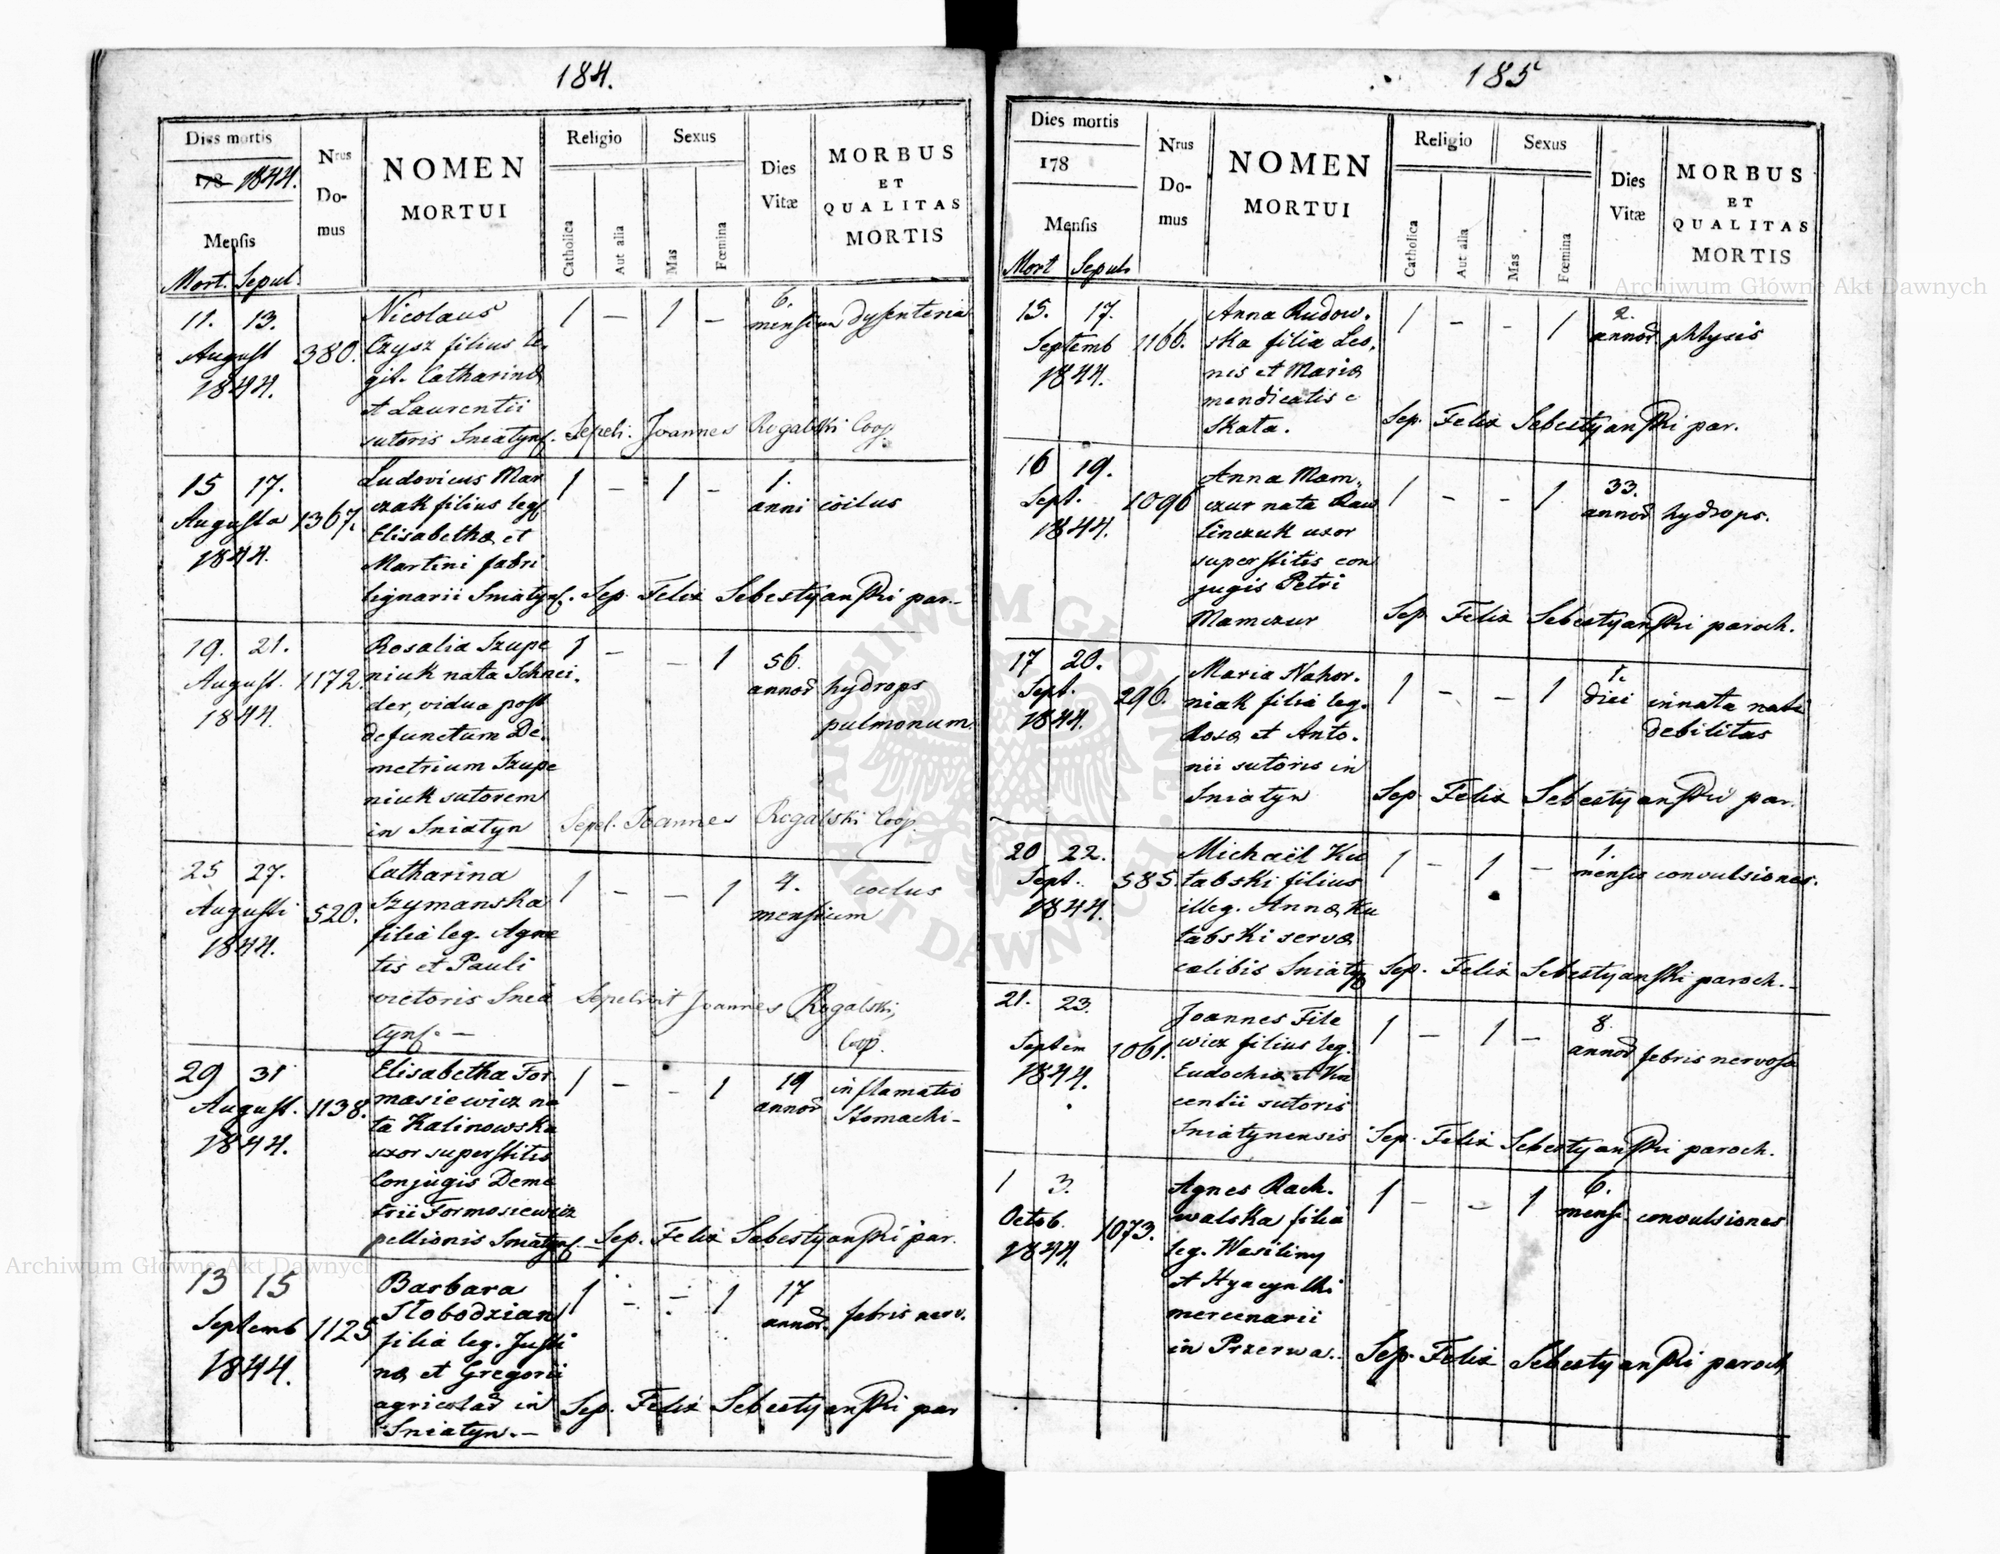 184.
Dies mortis
178 1844.
Mensis
Mort. Sepul.
Nrus
Do-
mus
NOMEN
MORTUI
Religio
Catholica
Aut alia
Sexus
Mas
Fœmina
Dies
Vitæ
MORBUS
ET
QUALITAS
MORTIS
11. 13.
August
1844.
380.
Nicolaus
Czysz filius le.
git. Catharinæ
et Laurentii
sutoris Sniatynſ.
1 — 1 —
6.
mensium
dysenteria
Sepeli. Joannes Rogalski Coop
15 17.
Augusta
1844.
1367.
Ludovicus Mar
czak filius leg.
Elisabethæ et
Martini fabri
lignarii Sniatynſ.
1 — 1 —
1.
anni
coitus
Sep. Felix Sebestyanski par.
19. 21.
August.
1844.
1172.
Rosalia Szupe
niuk nata Schnei.
der, vidua post
defunctum De.
metrium Szupe
niuk sutorem
in Sniatyn
1 — — 1
56.
annor
hydrops
pulmonum
Sepel. Joannes Rogalski Coop.
25 27.
Augusti
1844.
520.
Catharina
Szymanska
filia leg. Agne
tis et Pauli
victoris Snia
tynſ. —
1 — — 1
4.
mensium
coclus
Sepelivit Joannes Rogalski,
Coop.
29 31
August.
1844.
1138.
Elisabetha For
masiewicz na
ta Kalinowska
uxor superstitis
Conjugis Deme
trii Formosiewicz
pellionis Sniatynſ.
1 — — 1
19
annor
inflamatio
Stomachi —
Sep. Felix Sebestyanski par.
13 15
Septemb
1844.
1125
Barbara
Slobodzian
filia leg. Justi
næ et Gregorii
agricolad in
Sniatyn. —
1 — — 1
17
annor.
febris nerv.
Sep. Felix Sebestyanski par
185
Dies mortis
178
Mensis
Mort Sepul.
Nrus
Do-
mus
NOMEN
MORTUI
Religio
Catholica
Aut alia
Sexus
Mas
Fœmina
Dies
Vitæ
MORBUS
ET
QUALITAS
MORTIS
15. 17.
Septemb
1844.
1166.
Anna Rudow.
ska filia Leo.
nis et Mariæ
mendicatis e
Skata.
1 — — 1
2.
annor
phtysis
Sep. Felix Sebestyanski par.
16 19.
Sept.
1844.
1096
Anna Mam.
czur nata Raw
linczuk uxor
superstitis con
jugis Petri
Mamczur
1 — — 1
33.
annor
hydrops.
Sep. Felix Sebestyanski paroch.
17 20.
Sept.
1844.
296.
Maria Nahor.
niak filia leg.
Rosæ et Anto.
nii sutoris in
Sniatyn
1 — — 1
1.
diei
innata nati
debilitas
Sep. Felix Sebestyanski par.
20 22.
Sept.
1844.
585.
Michaël Ku
tabski filius
illeg. Annæ Ku
tabski servæ
cælibis Sniatyn
1 — 1 —
1.
mensis
convulsiones.
Sep. Felix Sebestyanski paroch. —
21. 23.
Septem
1844.
1061.
Joannes File
wicz filius leg.
Eudochiæ et Vin
centii sutoris
Sniatynensis
1 — 1 —
8.
annor
febris nervosa
Sep. Felix Sebestyanski paroch.
1 3.
Octob.
1844.
1073.
Agnes Rach.
walska filia
leg. Wasiliny
et Hyacynthi
mercenarii
in Przerwa.
1 — — 1
6.
mensi
convulsiones
Sep. Felix Sebestyanski paroch
Archiwum Główne Akt Dawnych
ARCHIWUM GŁÓWNE AKT DAWNYCH
Archiwum Główne Akt Dawnych